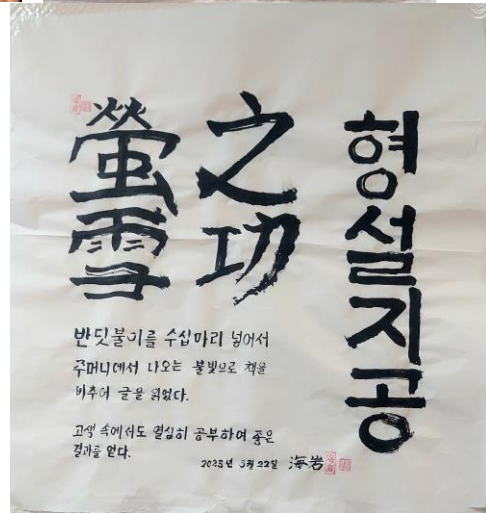 螢雪
之功
형설지공
반딧불이를 수십마리 넣어서
주머니에서 나오는 불빛으로 책을
비추어 글을 읽었다.
고생 속에서도 열심히 공부하여 좋은
결과를 얻다.
2023년 3월 22일 海岩